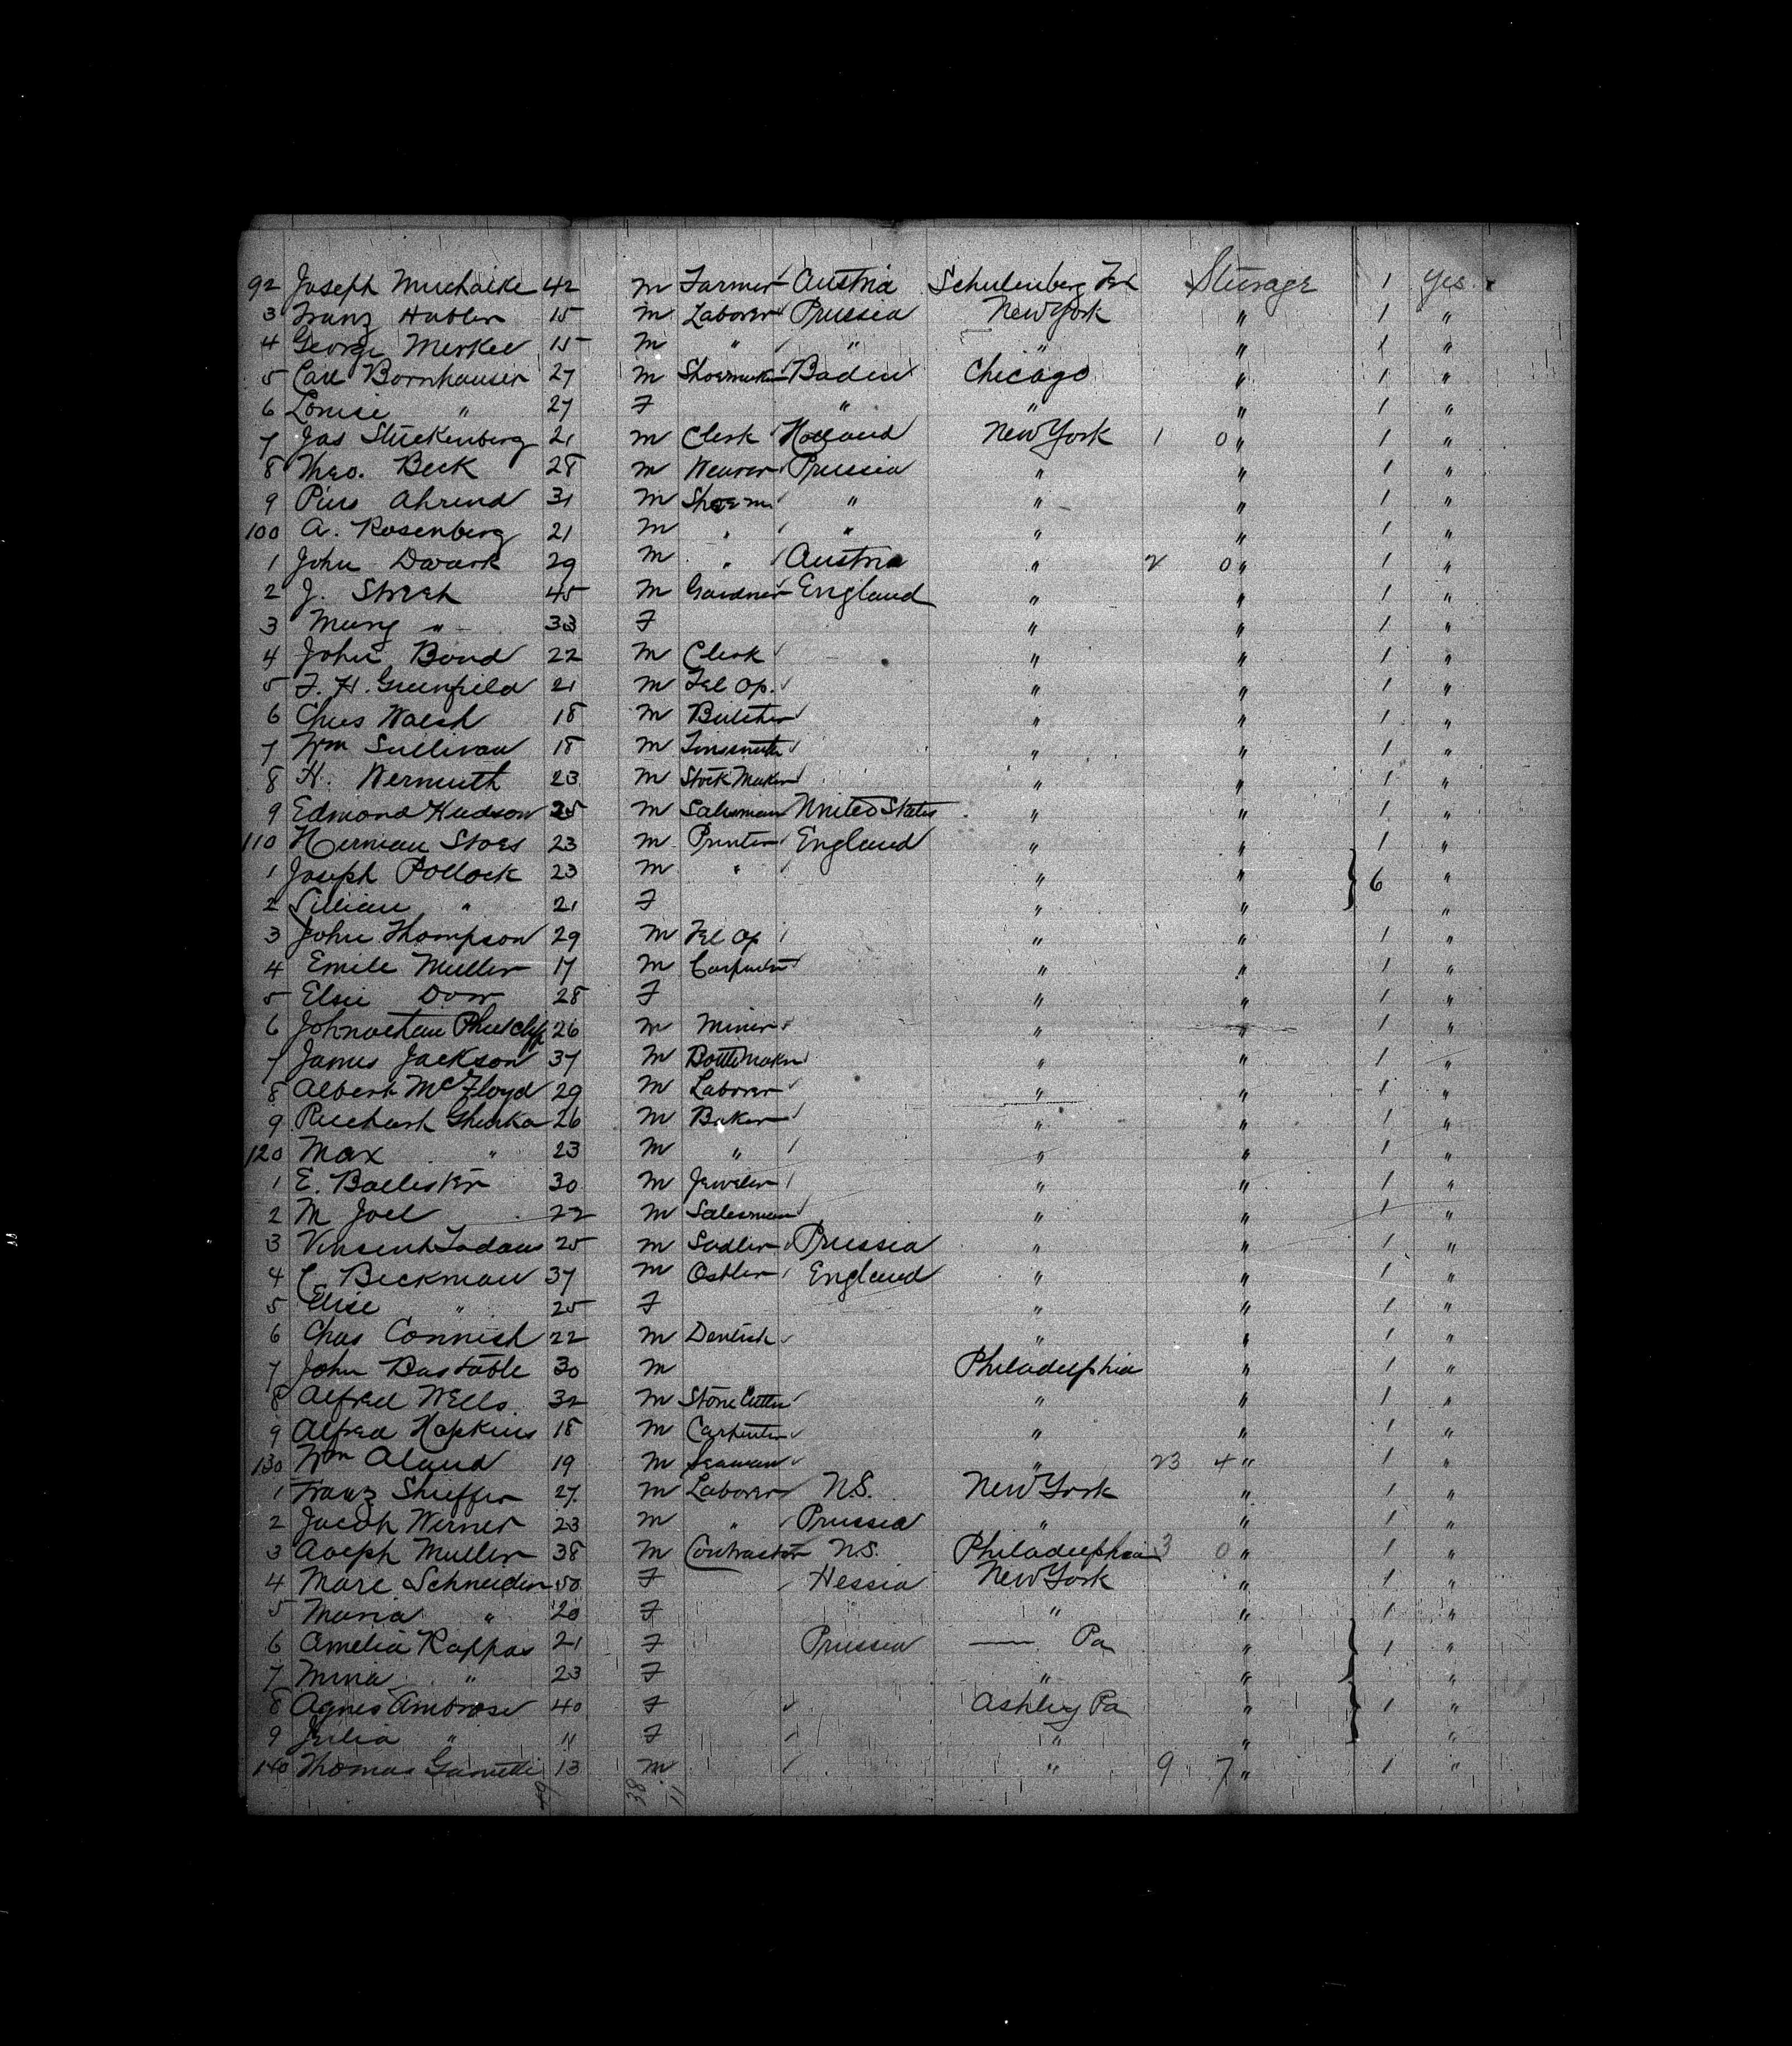 92 Joseph Muchaike 42 M Farmer Austria Schulenberg Tex Steerage 1 Yes
3 Franz Hubler 15 M Laborer Prussia New York " 1 "
4 George Merkel 15 M " " " " 1 "
5 Carl Bornhauser 27 M Shoemaker Baden Chicago " 1 "
6 Louise " 27 F " " " 1 "
7 Jas Stuckenberg 21 M Clerk Holland New York 1 0 " 1 "
8 Theo. Beck 28 M Weaver Prussia " " 1 "
9 Pius Ahrend 31 M Shoem " " " 1 "
100 A. Rosenberg 21 M " " " " 1 "
1 John Dwark 29 M " Austria " 2 0 " 1 "
2 J. 45 M Gardner England " " 1 "
3 " 33 F " " 1 "
4 John Bond 22 M Clerk " " 1 "
5 F. H. Greenfield 21 M Tel Op. " " 1 "
6 Chas Walsh 18 M Butcher " " 1 "
7 Wm Sullivan 18 M Tinsmith " " 1 "
8 H. Wermuth 23 M Stock Maker " " 1 "
9 Edmond Hudson 25 M Salesman United States " " 1 "
110 Herman Stoes 23 M Printer England " " 1 "
1 Joseph Pollock 23 M " " " 6 "
2 Lillian " 21 F " " "
3 John Thompson 29 M Tel Op " " 1 "
4 Emile Muller 17 M Carpenter " " 1 "
5 Elsie Dorr 28 F " " 1 "
6 26 M Miner " " 1 "
7 James Jackson 37 M Bottle Maker " " 1 "
8 Albert McFloyd 29 M Laborer " " 1 "
9 26 M Baker " " 1 "
120 Max " 23 M " " " 1 "
1 E. Ballister 30 M Jeweler " " 1 "
2 M Joel 22 M Salesman " " 1 "
3 Vinsent 25 M Sadler Prussia " " 1 "
4 C Beckman 37 M Ostler England " " 1 "
5 Elise " 25 F " " 1 "
6 Chas Cornish 22 M Dentist " " 1 "
7 John Bastable 30 M Philadelphia " 1 "
8 Alfred Wells 32 M Stone Cutter " " 1 "
9 Alfred Hopkins 18 M Carpenter " " 1 "
130 Wm Aland 19 M Seaman " 23 4 " 1 "
1 Franz Shieffer 27 M Laborer N.S. New York " 1 "
2 Jacob Werner 23 M " Prussia " " 1 "
3 Adolph Muller 38 M Contractor N.S. Philadelphia 3 0 " 1 "
4 Marc Schneider 50 F Hessia New York " 1 "
5 Maria " 20 F " " 1 "
6 Amelia Kappas 21 F Prussia — Pa " 1 "
7 Mina " 23 F " " "
8 Agnes Ambrose 40 F Ashley Pa " 1 "
9 Julia " 11 F " " "
140 Thomas 13 M " 9 7 " 1 "
38 11